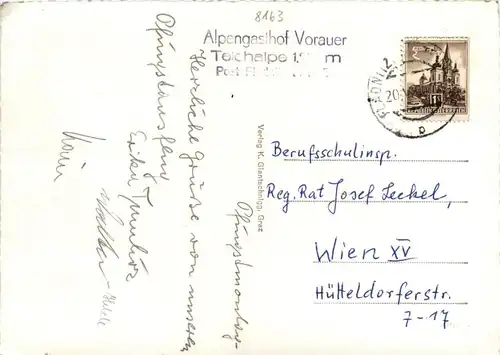 8163
Alpengasthof Vorauer
Teichalpe m
Post
Pfingstmontag
Herzliche Grüße von unserem
Pfingstausflug
Erika
Verlag K. Glantschnigg, Graz
Berufsschulinsp.
Reg. Rat Josef Leckel,
Wien XV
Hütteldorferstr.
7-17